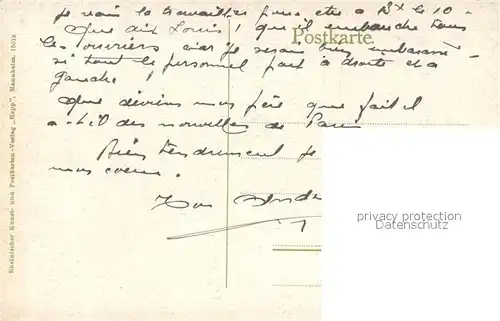 je vais la travailler peut etre a Bx le 10 -
Que dit Louis ! qu'il embauche tous
les ouvriers car je serai bien embarassé
si tout le personnel part à droite et à
gauche !
Postkarte.
Que devient mon père que fait il
a-t-il des nouvelles de
Bien tendrement je
mon coeur.
Ton
Rheinischer Kunst- und Postkarten-Verlag „Napp", Mannheim.
privacy protection
Datenschutz